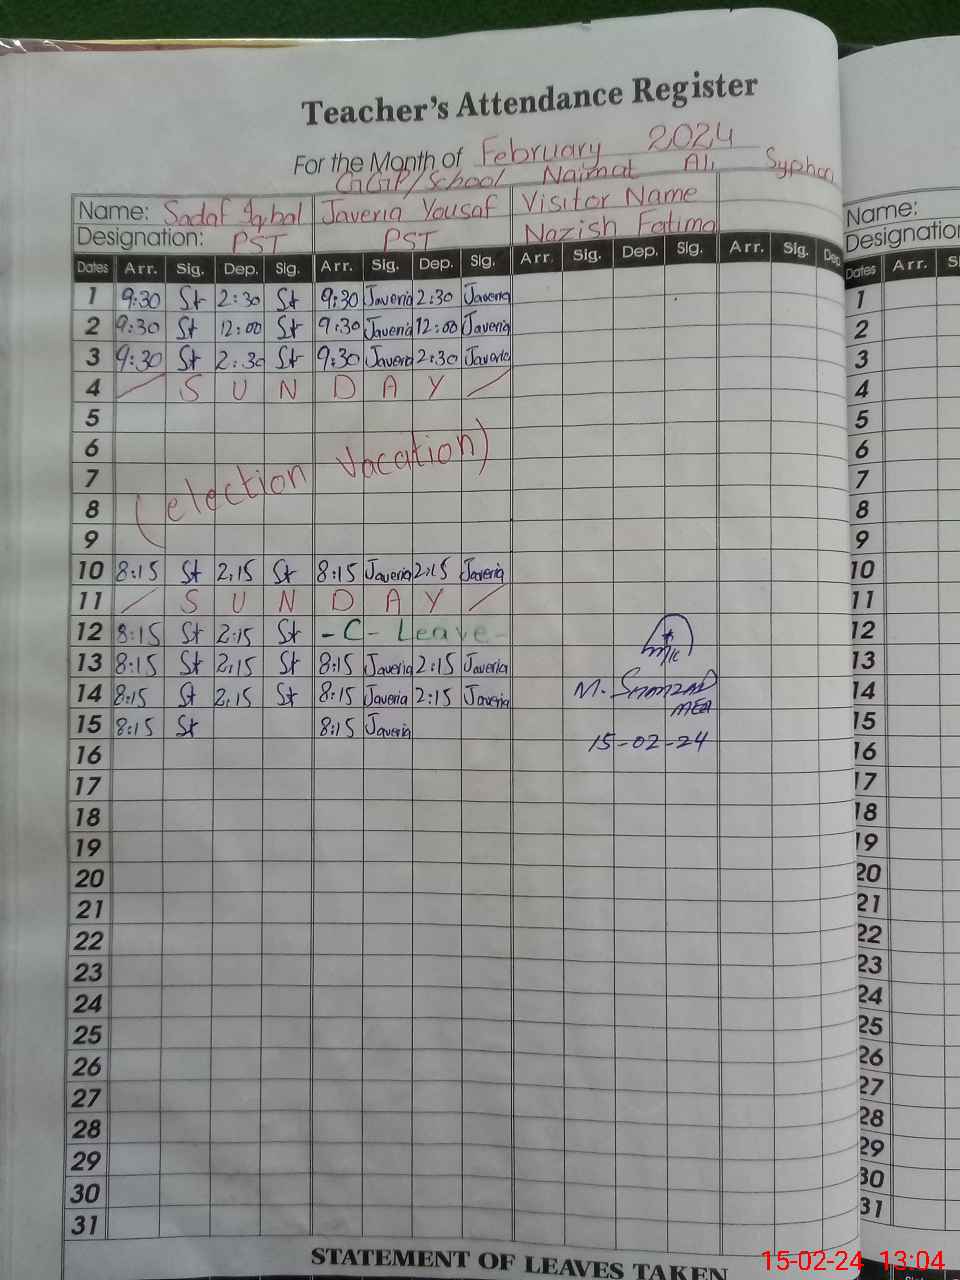 Teacher's Attendance Register
For the Month of February 2024
GGP/School Naimat Ali Syphon
Name: Sadaf Iqbal Javeria Yousaf Visitor Name
Designation: PST PST Nazish Fatima
Dates Arr. Sig. Dep. Sig. Arr. Sig. Dep. Sig. Arr. Sig. Dep. Sig. Arr. Sig. Dep.
1 9:30 St 2:30 St 9:30 Javeria 2:30 Javeria
2 9:30 St 12:00 St 9:30 Javeria 12:00 Javeria
3 9:30 St 2:30 St 9:30 Javeria 2:30 Javeria
4 S U N D A Y
5
6
7 (election vacation)
8
9
10 8:15 St 2:15 St 8:15 Javeria 2:15 Javeria
11 S U N D A Y
12 8:15 St 2:15 St - C - Leave -
13 8:15 St 2:15 St 8:15 Javeria 2:15 Javeria
14 8:15 St 2:15 St 8:15 Javeria 2:15 Javeria M.
MEA
15 8:15 St 8:15 Javeria 15-02-24
16
17
18
19
20
21
22
23
24
25
26
27
28
29
30
31
STATEMENT OF LEAVES TAKEN
Name:
Designation
Dates Arr. S
1
2
3
4
5
6
7
8
9
10
11
12
13
14
15
16
17
18
19
20
21
22
23
24
25
26
27
28
29
30
31
15-02-24 13:04